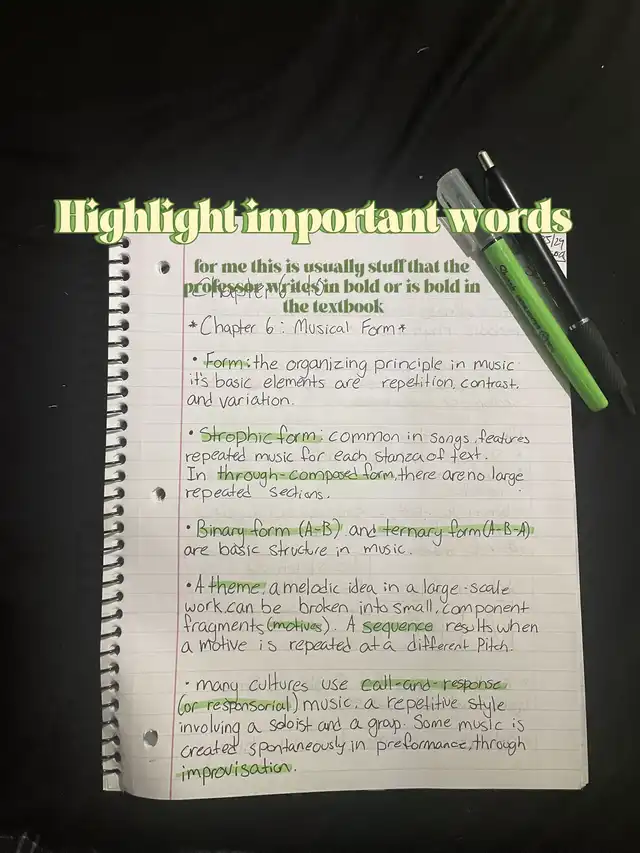 Highlight important words
for me this is usually stuff that the
professor writes in bold or is bold in
the textbook
*Chapter 6: Musical Form*
• Form: the organizing principle in music
it's basic elements are repetition, contrast,
and variation.
• Strophic form: common in songs, features
repeated music for each stanza of text.
In through-composed form, there are no large
repeated sections.
• Binary form (A-B) and ternary form (A-B-A)
are basic structure in music.
• A theme, a melodic idea in a large-scale
work, can be broken into small, component
fragments (motives). A sequence results when
a motive is repeated at a different Pitch.
• many cultures use call-and-response
(or responsorial) music, a repetitive style
involving a soloist and a group. Some music is
created spontaneously in preformance, through
improvisation.